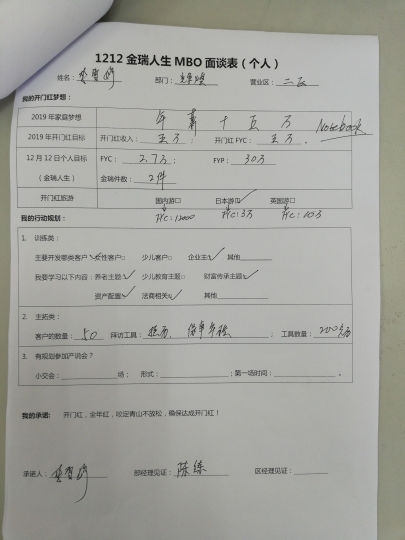 1212金瑞人生MBO面谈表（个人）
姓名： 部门： 营业区： 二区
我的开门红梦想：
2019年家庭梦想 年薪十五万
2019年开门红目标 开门红收入： 五万 ； 开门红FYC： 五万 。 Notebook
12月12日个人目标（金瑞人生） FYC： 2.7万 ； FYP： 30万
金瑞件数： 2件
开门红旅游 国内游□ 日本游☑ 英国游□
FYC：12000 FYC：3万 FYC：10万
我的行动规划：
1. 训练类：
主要开发哪类客户：女性客户□ 少儿客户□ 企业主☑ 其他
我要学习以下内容：养老主题☑ 少儿教育主题□ 财富传承主题☑
资产配置☑ 法商相关☑ 其他
2. 主拓类：
客户的数量： 50 拜访工具： ； 工具数量：
3. 有规划参加产说会？
小交会： 场； 形式： ；第一场时间： 。
我的承诺: 开门红，全年红，咬定青山不放松，确保达成开门红！
承诺人： 部经理见证： 陈练 区经理见证：